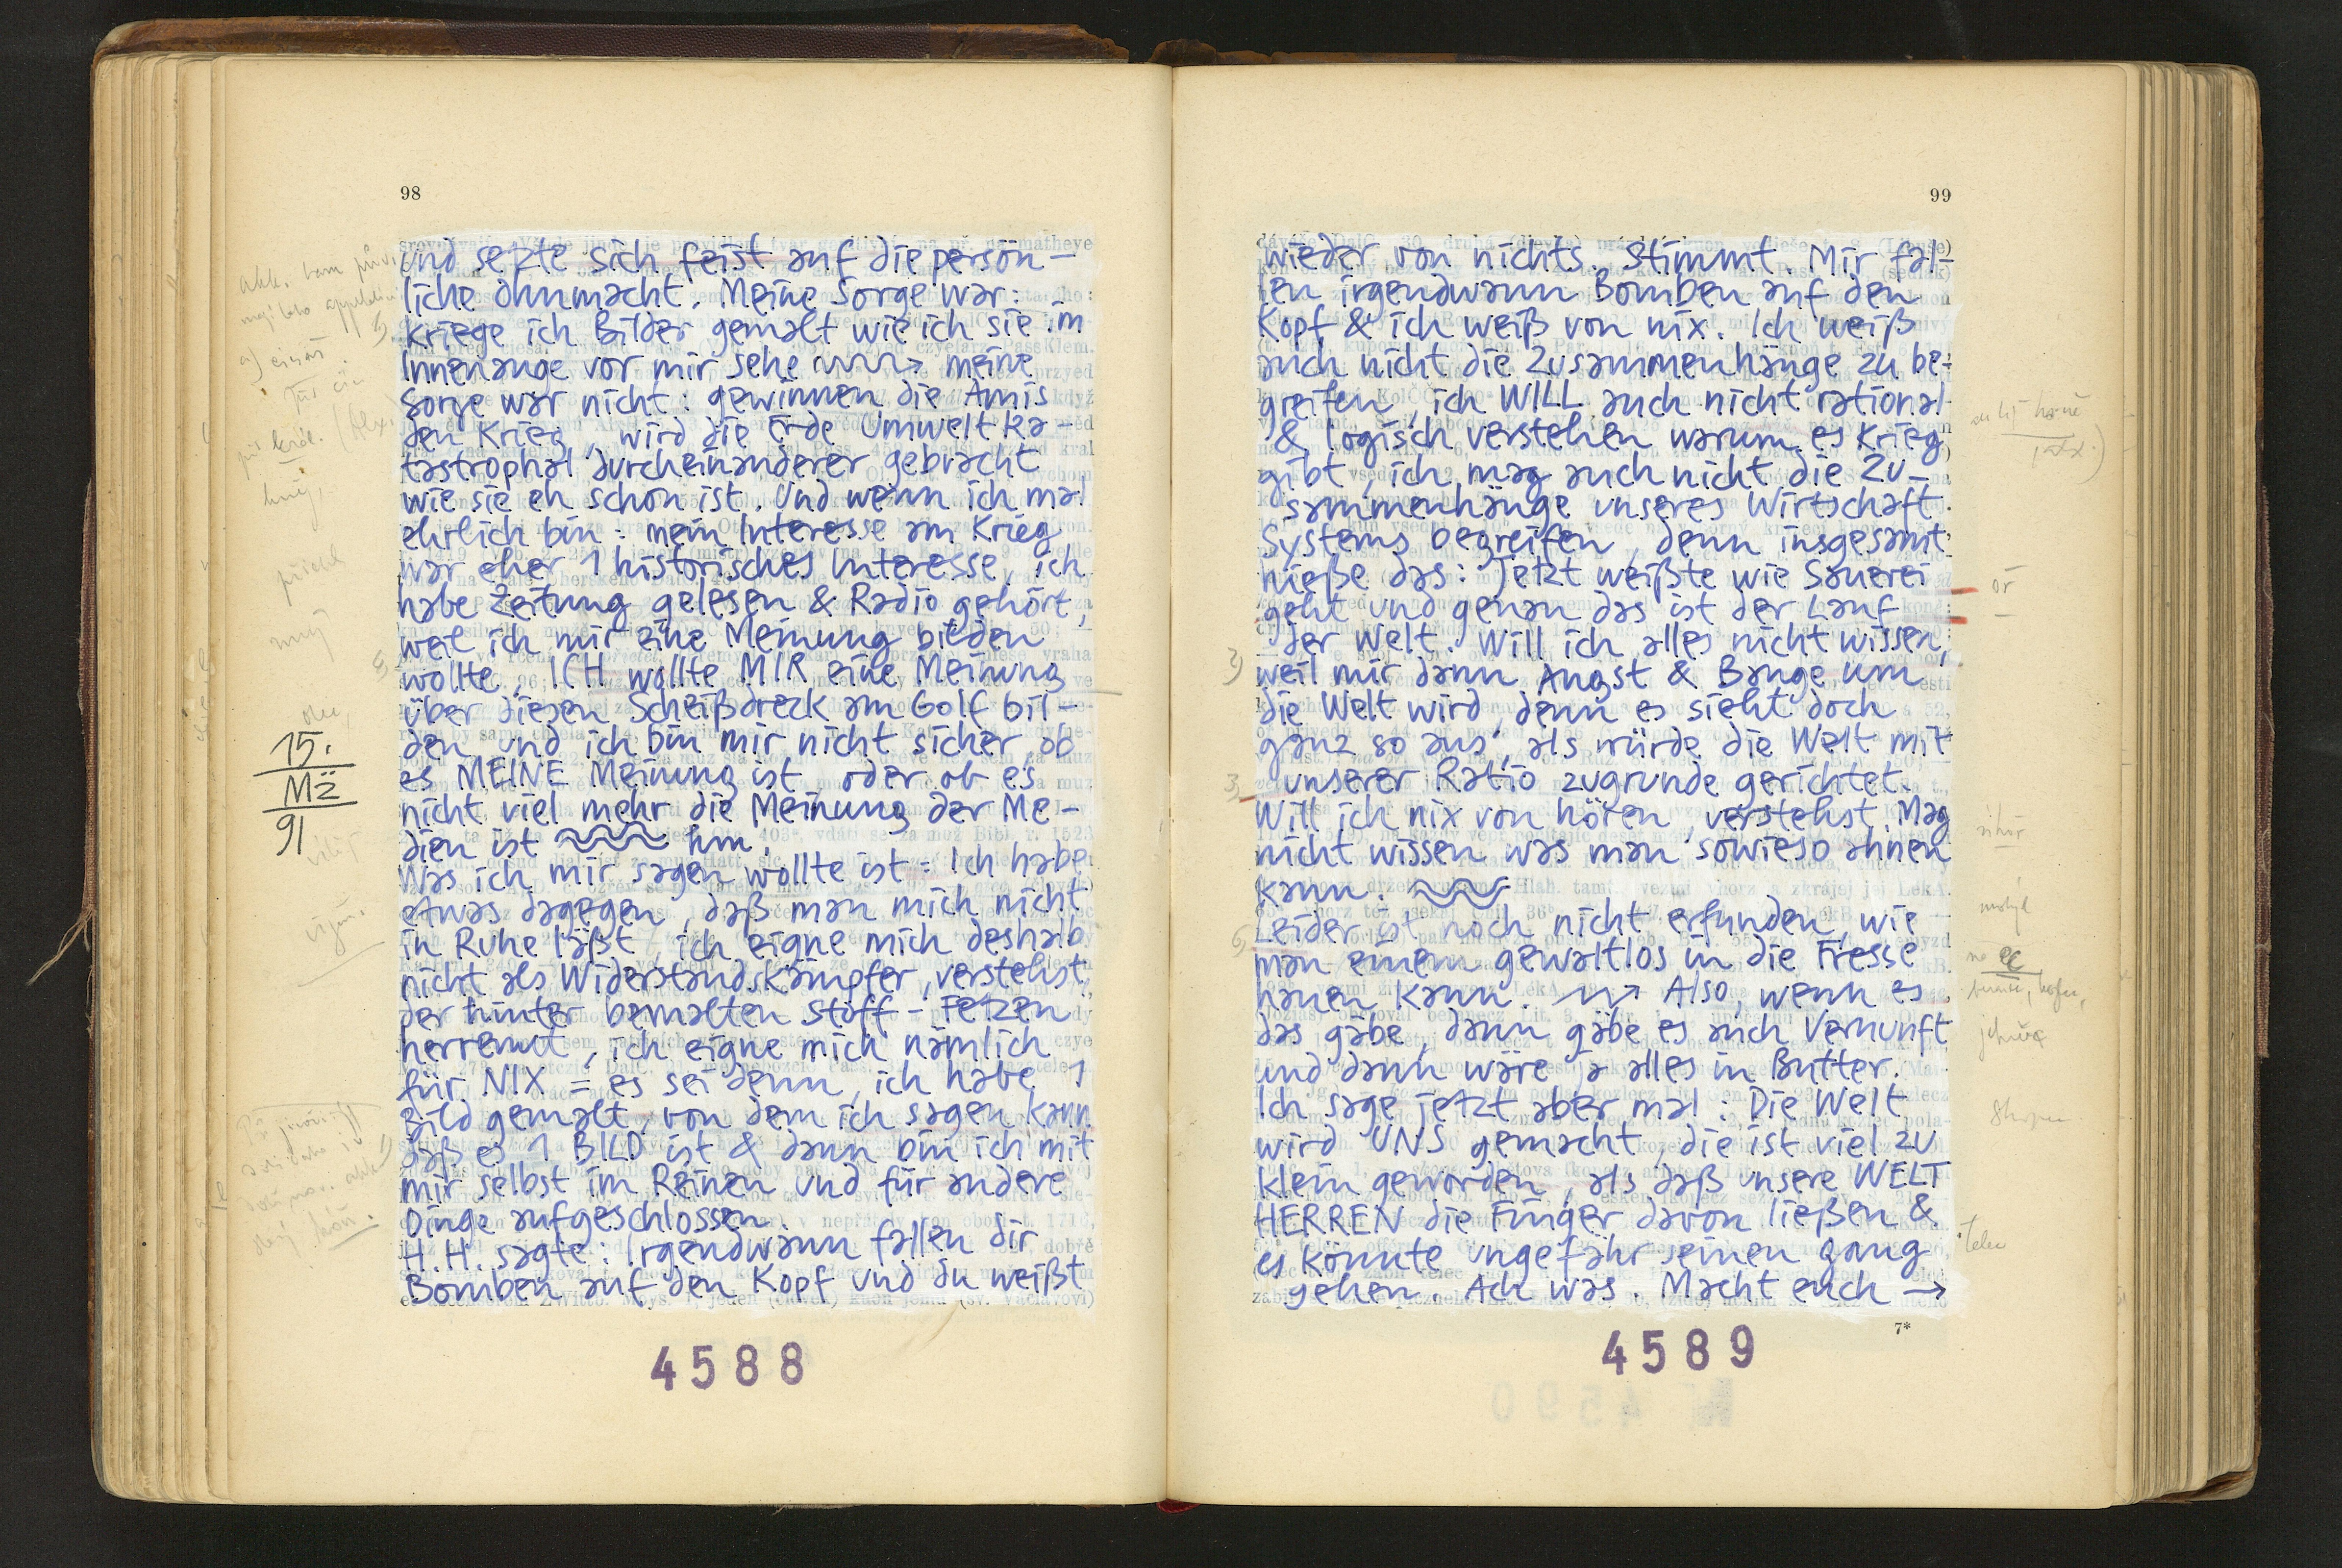 98
Und setzte sich feist auf die persön-
liche Ohnmacht. Meine Sorge war:
kriege ich Bilder gemalt wie ich sie im
Innenauge vor mir sehe → meine
Sorge war nicht: gewinnen die Amis
den Krieg, wird die Erde Umwelt ka-
tastrophal durcheinanderer gebracht
wie sie eh schon ist. Und wenn ich mal
ehrlich bin: mein Interesse am Krieg
war eher 1 historisches Interesse, ich
habe Zeitung gelesen & Radio gehört,
weil ich mir eine Meinung bilden
wollte. ICH wollte MIR eine Meinung
über diesen Scheißdreck am Golf bil-
den und ich bin mir nicht sicher ob
es MEINE Meinung ist oder ob es
nicht viel mehr die Meinung der Me-
dien ist hm.
Was ich mir sagen wollte ist: Ich habe
etwas dagegen, daß man mich nicht
in Ruhe läßt, ich eigne mich deshalb
nicht als Widerstandskämpfer, verstehst
der hinter bemalten Stoff-Fetzen
herrennt, ich eigne mich nämlich
für NIX = es sei denn, ich habe 1
Bild gemalt, von dem ich sagen kann
daß es 1 BILD ist & dann bin ich mit
mir selbst im Reinen und für andere
Dinge aufgeschlossen.
H.H. sagte: Irgendwann fallen dir
Bomben auf den Kopf und du weißt
15.
Mä
91
4588
99
wieder von nichts. Stimmt. Mir fal-
len irgendwann Bomben auf den
Kopf & ich weiß von nix. Ich weiß
auch nicht die Zusammenhänge zu be-
greifen, ich WILL auch nicht rational
& logisch verstehen warum es Krieg
gibt, ich mag auch nicht die Zu-
sammenhänge unseres Wirtschaft
Systems begreifen, denn insgesamt
hieße das: Jetzt weißte wie Sauerei
geht und genau das ist der Lauf
der Welt. Will ich alles nicht wissen,
weil mir dann Angst & Bange um
die Welt wird, denn es sieht doch
ganz so aus, als würde die Welt mit
unserer Ratio zugrunde gerichtet.
Will ich nix von hören, verstehst. Mag
nicht wissen was man sowieso ahnen
kann.
Leider ist noch nicht erfunden, wie
man einem gewaltlos in die Fresse
hauen kann. → Also, wenn es
das gäbe, dann gäbe es auch Vernunft
und dann wäre ja alles in Butter.
Ich sage jetzt aber mal: Die Welt
wird UNS gemacht, die ist viel zu
klein geworden, als daß unsere WELT
HERREN die Finger davon ließen &
es könnte ungefähr seinen Gang
gehen. Ach was. Macht euch →
7*
4589